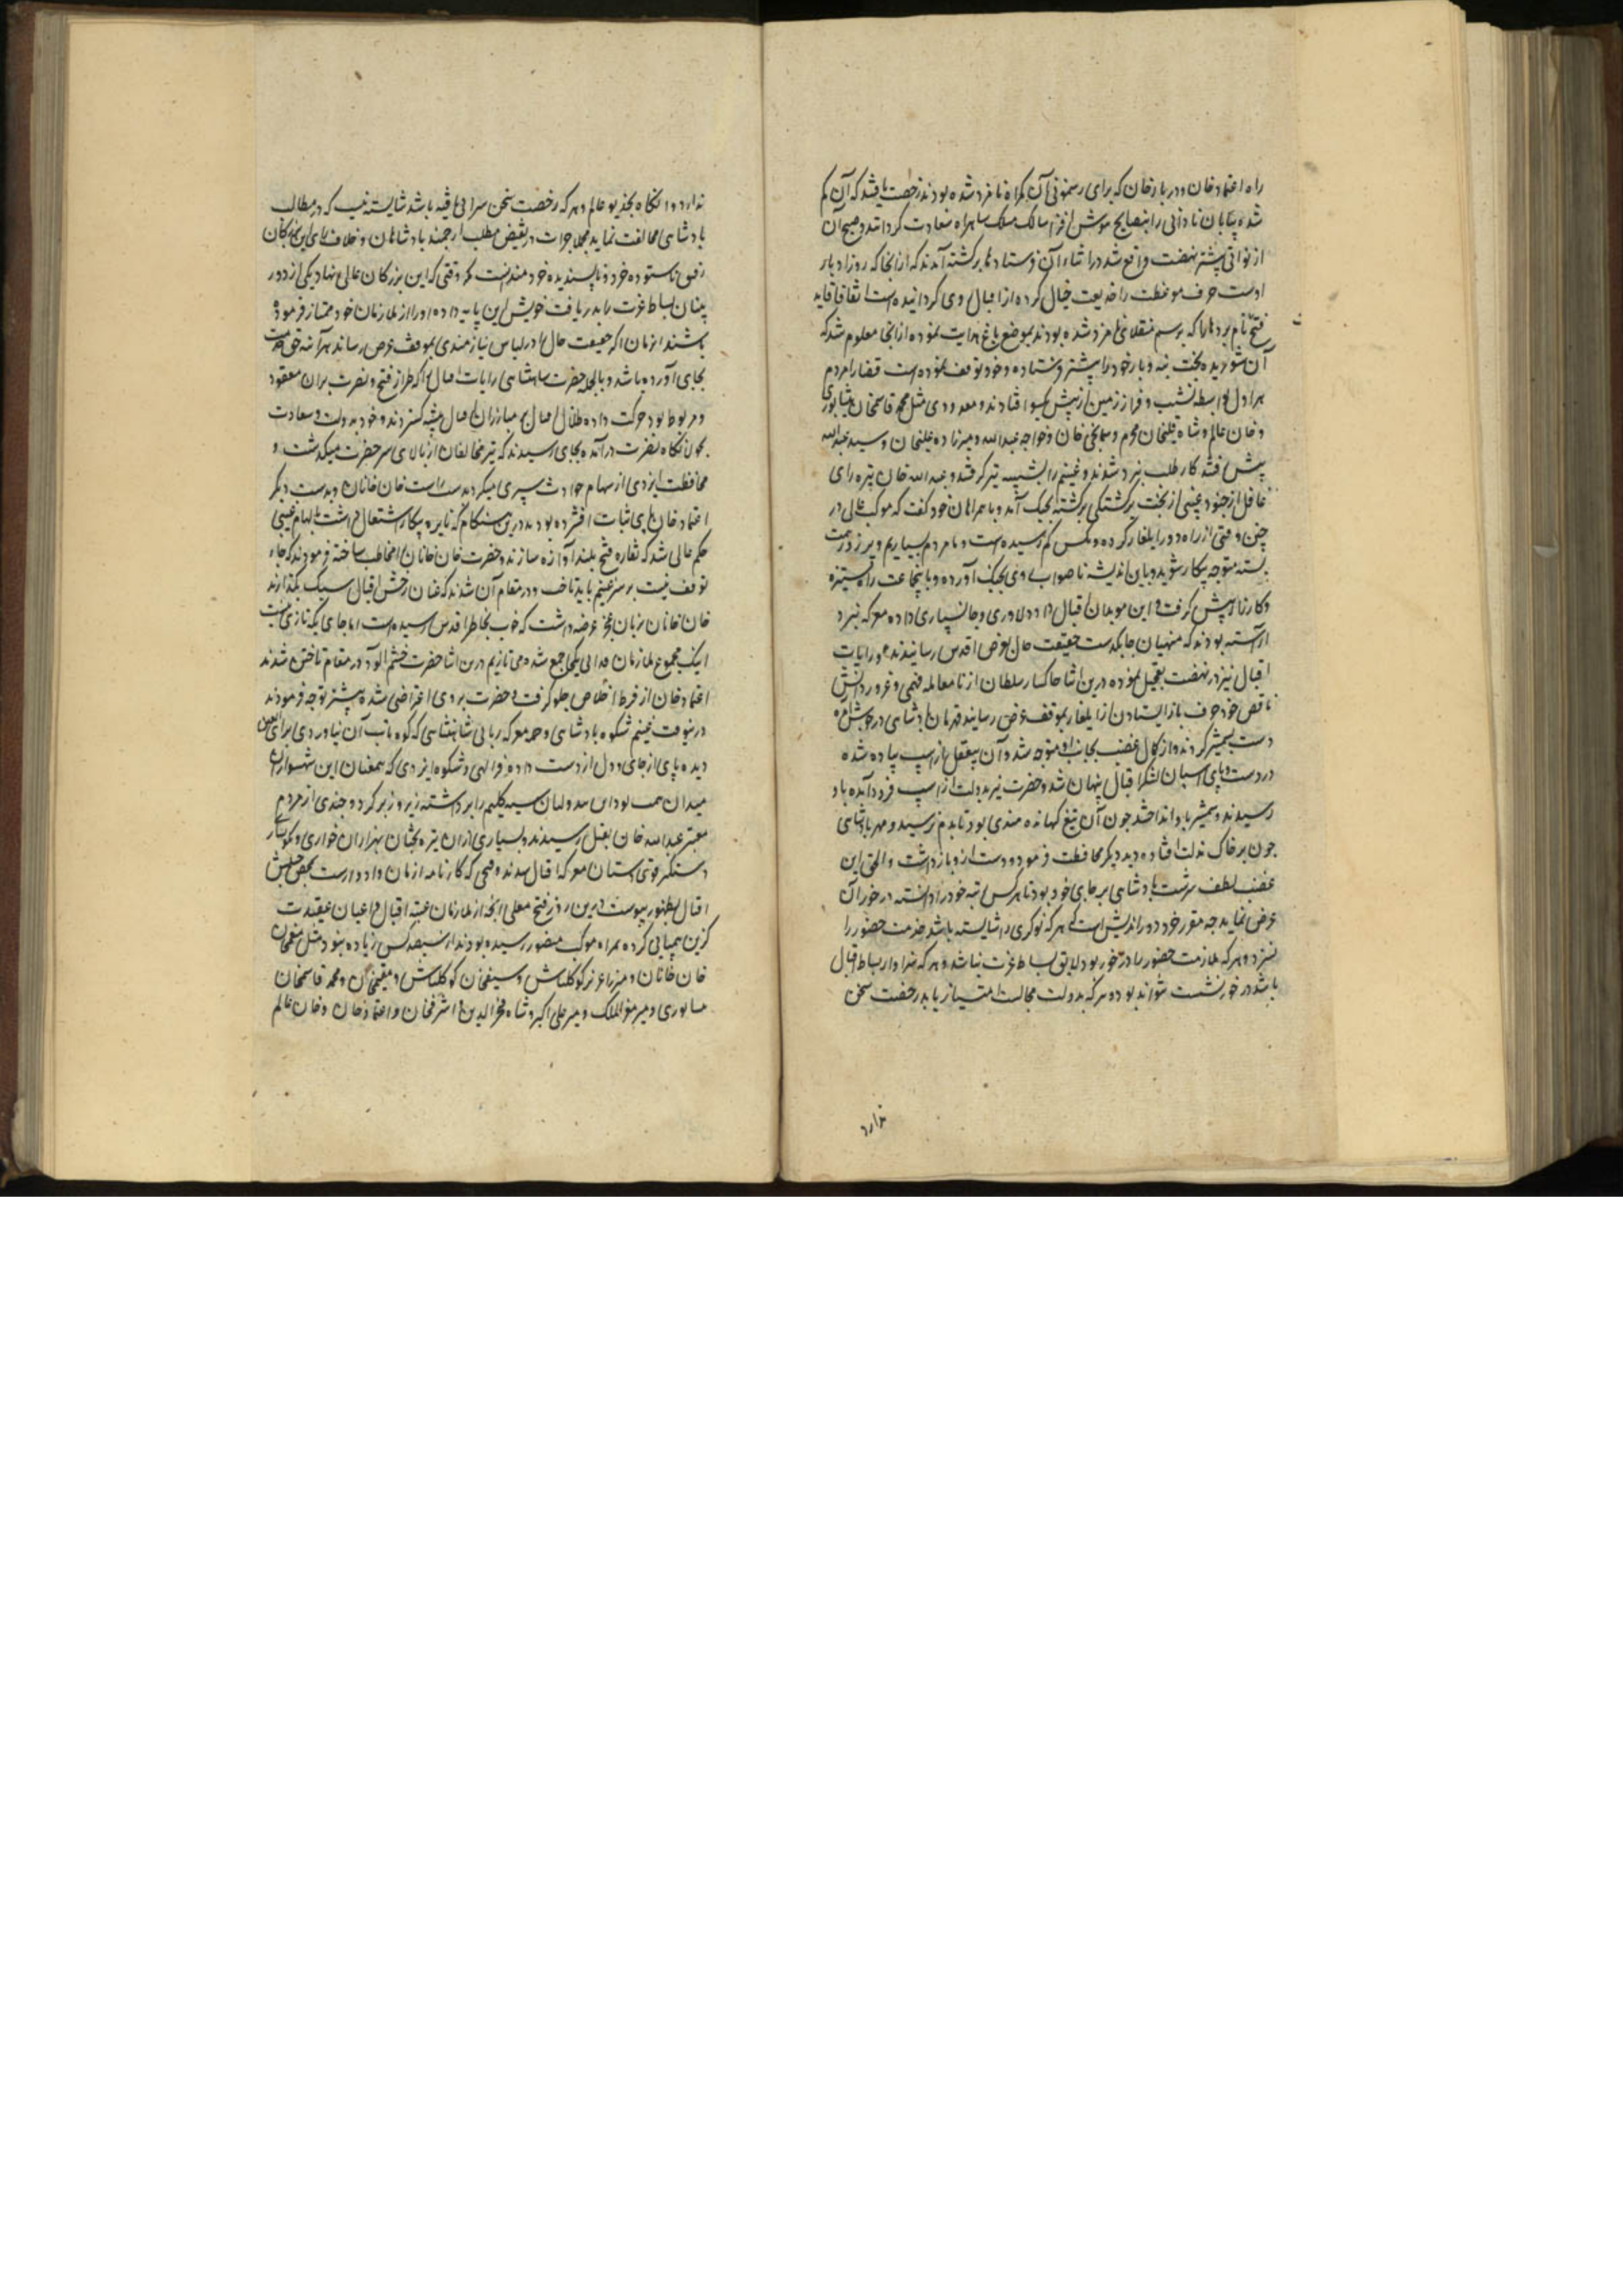 راه اعتماد خان و دربار خان که برای رهنمونی آن گمراه نامزد شده بودند رخصت یافتند که آن گم
شده بیابان نادانی را بنصایح هوش افزا سالک مسلک شاهراه سعادت گردانند و صبح آن
از نواتی پشتر نهضت واقع شد در اثناء آن فرستادها برگشته آمدند که از انجا که روز ادبار
اوست حرف موعظت را خدیعت خیال کرده از اقبال روی گردانیده است اتفاقا قاید
فتح نام بردها را که برسم منقلای نامزد شده بودند بموضع باغ هدایت نموده از انجا معلوم شد که
آن شوریده بخت بنه و بار خود را پیشتر فرستاده و خود توقف نموده است قضا را مردم
هراول بواسطه نشیب و فراز زمین از پیش یکسو افتادند و معدودی مثل محمد قاسم خان نیشاپوری
و خان عالم و شاه قلیخان محرم و خواجه عبدالله و میرزاده علیخان و سید عبدالله
پیش رفته کارطلب نبرد شدند و غنیم را بشیبه تیر گرفتند و عبدالله خان تیره رای
غافل از جنود غیبی از بخت برگشتگی برگشته بجنگ آمد و با همراهان خود گفت که موکب عالی در
چنین وقتی از راه دور ایلغار کرده و کس کم رسیده است و ما مردم بسیاریم
بسته متوجه پیکار شوید و باین اندیشه ناصواب روی بجنگ آورده و راه ستیزه
و کارزار پیش گرفت و این اقبال داد دلاوری و جانسپاری داده معرکه نبرد
آراسته بودند که منهیان چابکدست حقیقت حال بعرض اقدس رسانیدند و رایات
اقبال نیز در نهضت تعجیل نموده درین اثنا خاکسار سلطان از نامعامله فهمی و غرور دانش
ناقص خود حرف باز ایستادن از ایلغار بموقف عرض رسانید قهرمان پادشاهی در جوش آمده
دست بشمشیر کردند و از کمال غضب بجانب او متوجه شد و آن بیعقل از اسپ پیاده شده
در دست و پای اسپان لشکر اقبال پنهان شد و حضرت نیز بدولت از اسپ فرود آمده باو
رسیدند و شمشیر باو انداختند چون آن تیغ کهانده هندی بود تا بدم نرسید و مهر پادشاهی
چون بر خاک مذلت افتاده دید دیگر محافظت فرمود و دست ازو بازداشت و الحق این
غضب لطف سرشت پادشاهی بر جای خود بود تا هر کس رتبه خود را دانسته در خور آن
عرض نماید چه مقرر خرد دوراندیش است که هر که نوکری را شایسته باشد خدمت حضور را
نسزد و هر که ملازمت حضور را در خور بود لایق بساط عزت نباشد و هر که سزاوار بساط اقبال
باشد در خور نشست نتواند بود و هر که بدولت مجالست امتیاز یابد رخصت سخن
ندارد
ندارد و انکاه بجذیو عالم و هر که رخصت سخن سرائی یافته باشد شایسته نیست که در مطالب
پادشاهی مخالفت نماید بلکه جرات در نقیض مطلب ارجمند پادشاهان و خلاف رای این بزرگان
زدن ناستوده خرد و ناپسندیده خردمندانست مگر وقتی که این بزرگان عالی نهاد یکی از دور
بینان بساط عزت را بدریافت خویش این پایه داده او را از ملازمان خود ممتاز فرموده
باشند از زمان اگر حقیقت حال را در لباس نیازمندی بموقف عرض رساند هر آینه حق خدمت
بجای آورده باشد و بالجمله حضرت شاهنشاهی رایات اقبال را که طراز فتح و نصرت بران معقود
و مربوط بود حرکت داده ظلال اقبال بر مبارزان اقبال پیشه گستردند و خود بدولت و سعادت
بجولانگاه نصرت درآمده بجای رسیدند که تیر مخالفان از بالای سر حضرت میگذشت و
محافظت ایزدی از سهام حوادث سپری میکرد بدست راست خان خانان و بدست دیگر
اعتماد خان پای ثبات افشرده بودند درین هنگام که نایره پیکار اشتعال داشت بالهام غیبی
حکم عالی شد که نقاره فتح بلند آوازه سازند و حضرت خان خانان را مخاطب ساخته فرمودند که جای
توقف نیست بر سر غنیم باید تاخت و در مقام آن شدند که عنان رخش اقبال سبک بگذارند
خان خانان بزبان عجز عرضه داشت که خوب بخاطر اقدس رسیده است اما جای یکه تازی نیست
اینک مجموع ملازمان فدائی یکجا جمع شده می تازیم درین اثنا حضرت خشم آلود در مقام تاختن شدند
اعتماد خان از فرط اخلاص جلو گرفت و حضرت بر وی اعراضی شده پیشتر توجه فرمودند
درینوقت غنیم شکوه پادشاهی و معرکه ربائی شاهنشاهی که کوه تاب آن نیاوردی برای العین
دیده پای از جای و دل از دست داده فر الهی و شکوه ایزدی که همعنان این شهسوار
میدان سیه گلیم را برداشته زیر و زبر کرد و چندی از مردم
معتبر عبدالله خان بقتل رسیدند و بسیاری ازان تیره بختان بهزاران خواری و نگونسار
دستگیر اقبال شدند و فتحی که کارنامه ازمان و ادوار است بمحض
اقبال بظهور پیوست درین روز فتح معلی آنچه از ملازمان عتبه اقبال و اعیان عقیدت
گزین همپائی کرده همراه موکب منصور رسیده بودند از سیصد کس زیاده نبود مثل منعم خان
خان خانان و میرزا عزیز کوکلتاش و سیف خان کوکلتاش و مقیم خان و محمد قاسم خان
نیشابوری و میر معز الملک و میر علی اکبر و شاه فخرالدین و اشرف خان و اعتماد خان و خان عالم